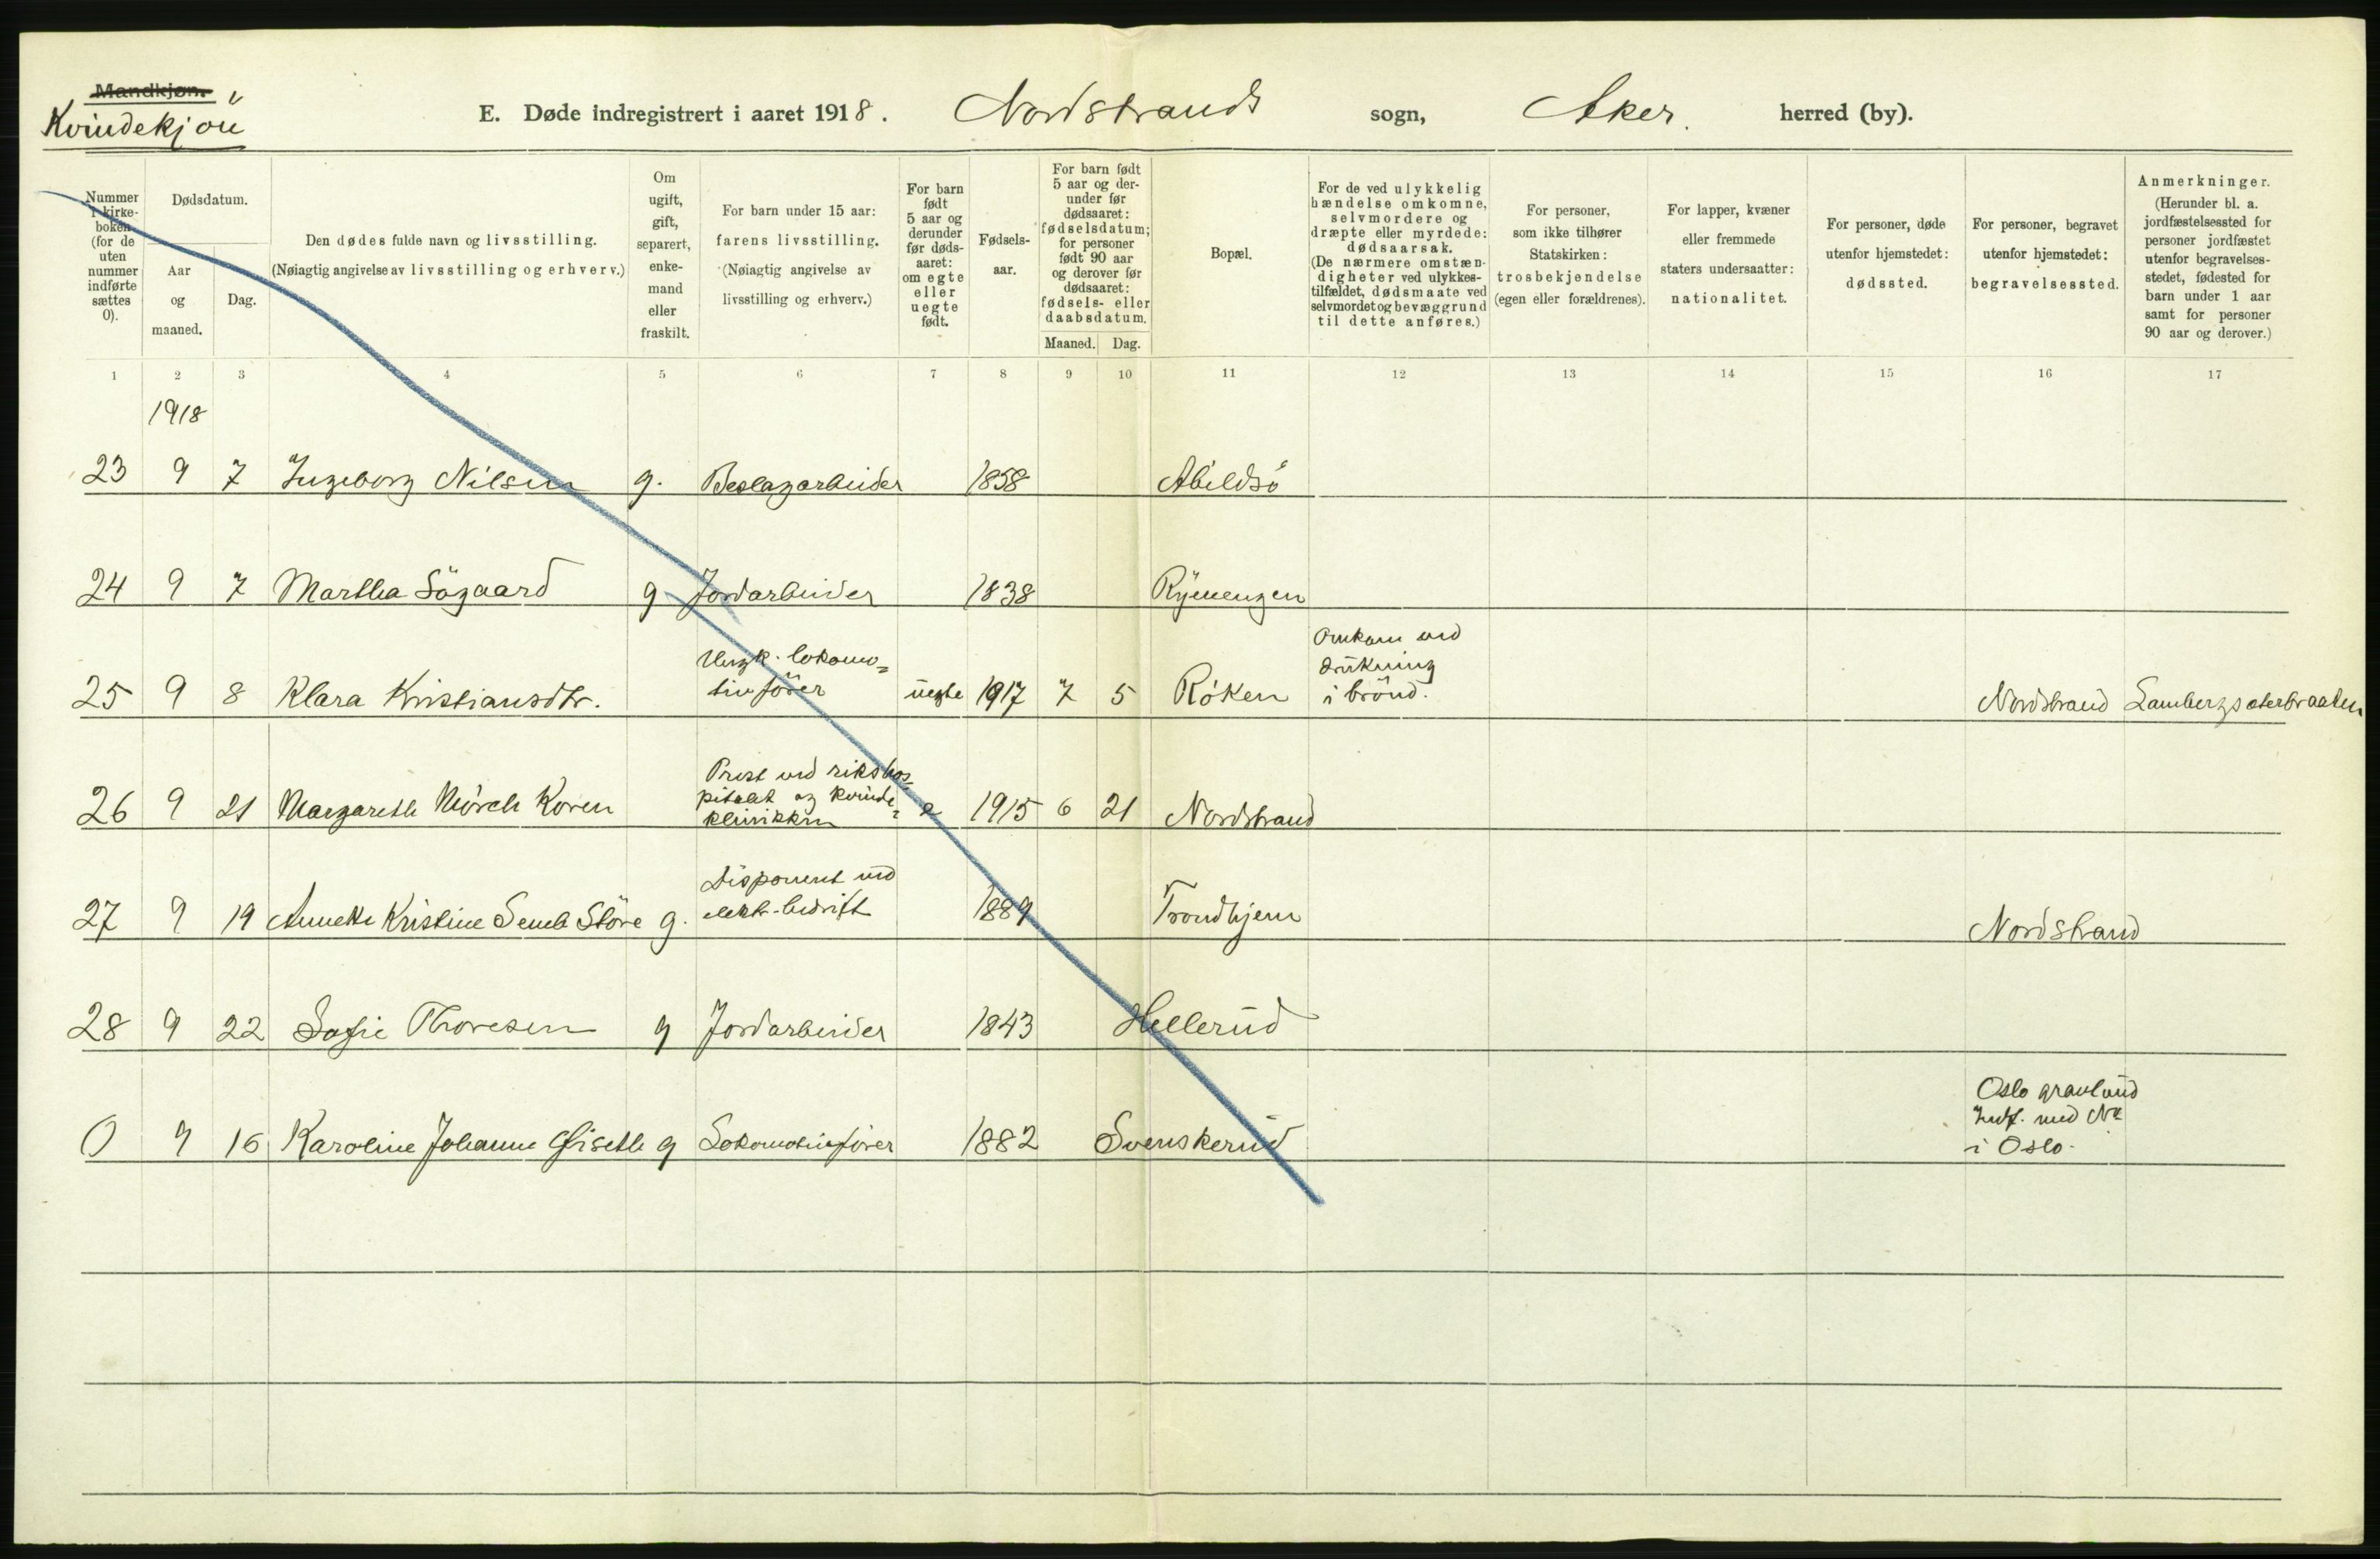 Mandkjøn.
Kvindekjön
E. Døde indregistrert i aaret 1918. Nordstrands sogn, Aker. herred (by).
Nummer i kirkeboken (for de uten nummer indførte sættes 0).
Dødsdatum.
Aar og maaned.
Dag.
Den dødes fulde navn og livsstilling.
(Nøiagtig angivelse av livsstilling og erhverv.)
Om ugift, gift, separert, enkemand eller fraskilt.
For barn under 15 aar: farens livsstilling.
(Nøiagtig angivelse av livsstilling og erhverv.)
For barn født 5 aar og derunder før dødsaaret: om egte eller uegte født.
Fødselsaar.
For barn født 5 aar og derunder før dødsaaret: fødselsdatum; for personer født 90 aar og derover før dødsaaret: fødsels- eller daabsdatum.
Maaned. Dag.
Bopæl.
For de ved ulykkelig hændelse omkomne, selvmordere og dræpte eller myrdede: dødsaarsak.
(De nærmere omstændigheter ved ulykkestilfældet, dødsmaate ved selvmordet og bevæggrund til dette anføres.)
For personer, som ikke tilhører Statskirken: trosbekjendelse (egen eller forældrenes).
For lapper, kvæner eller fremmede staters undersaatter: nationalitet.
For personer, døde utenfor hjemstedet: dødssted.
For personer, begravet utenfor hjemstedet: begravelsessted.
Anmerkninger.
(Herunder bl. a. jordfæstelsessted for personer jordfæstet utenfor begravelsesstedet, fødested for barn under 1 aar samt for personer 90 aar og derover.)
1 2 3 4 5 6 7 8 9 10 11 12 13 14 15 16 17
1918
23 9 7 Ingeborg Nilsen g. Beslagarbeider 1858 Abildsö
24 9 7 Martha Sögaard g Jordarbeider 1838 Ryenengen
25 9 8 Klara Kristiansdtr. Ungk. lokomo=
tivförer uegte 1917 7 5 Röken Omkom ved
drukning
i brönd. Nordstrand Lambergsæterbraaten
26 9 21 Margarethe Mörch Koren Prest ved rikshos=
pitalet og kvinde=
klinikken e 1915 6 21 Nordstrand
27 9 19 Annette Kristine Semb Störe g. Disponent ved
elektr. bedrift 1889 Trondhjem Nordstrand
28 9 22 Sofie Thoresen g Jordarbeider 1843 Hellerud
0 9 16 Karoline Johanne Giseth g Lokomotivförer 1882 Svenskerud Oslo gravlund
Indf. med Nr
i Oslo.